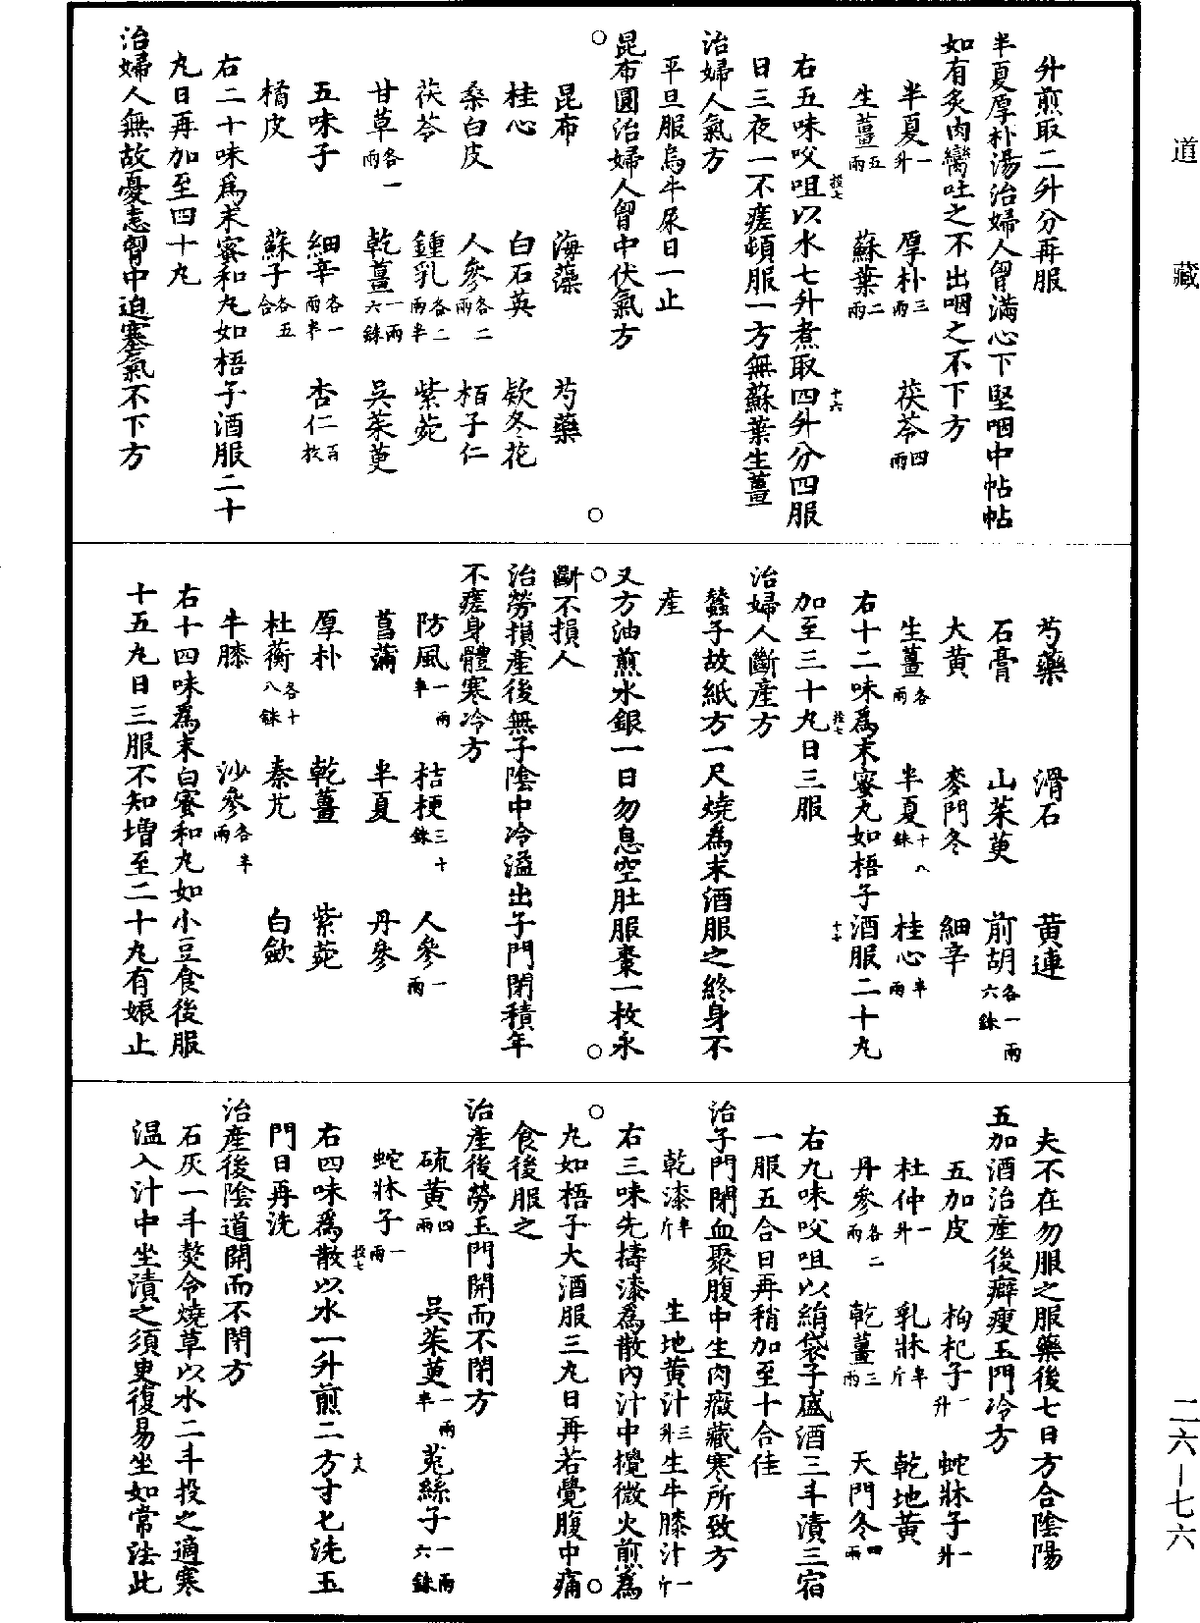 道藏
升煎取二升分再服
半夏厚朴湯治婦人胷滿心下堅咽中帖帖
如有炙肉臠吐之不出咽之不下方
半夏一升 厚朴三兩 茯苓四兩
生薑五兩 蘇葉二兩
右五味㕮咀以水七升煮取四升分四服
日三夜一不瘥頓服一方無蘇葉生薑
治婦人氣方
平旦服烏牛尿日一止
昆布圓治婦人胷中伏氣方
昆布 海藻 芍藥
桂心 白石英 欵冬花
桑白皮 人參各二兩 栢子仁
茯苓 鍾乳各二兩半 紫菀
甘草各一兩 乾薑一兩六銖 吳茱萸
五味子 細辛各一兩半 杏仁百枚
橘皮 蘇子各五合
右二十味爲末蜜和丸如梧子酒服二十
丸日再加至四十丸
治婦人無故憂恚胷中迫塞氣不下方
芍藥 滑石 黃連
石膏 山茱萸 前胡各一兩六銖
大黃 麥門冬 細辛
生薑各兩 半夏十八銖 桂心半兩
右十二味爲末蜜丸如梧子酒服二十丸
加至三十丸日三服
治婦人斷產方
蠶子故紙方一尺燒爲末酒服之終身不
產
又方油煎水銀一日勿息空肚服棗一枚永
斷不損人
治勞損產後無子陰中冷溢出子門閉積年
不瘥身體寒冷方
防風一兩半 桔梗三十銖 人參一兩
菖蒲 半夏 丹參
厚朴 乾薑 紫菀
杜蘅各十八銖 秦艽 白歛
牛膝 沙參各半兩
右十四味爲末白蜜和丸如小豆食後服
十五丸日三服不知增至二十丸有娠止
夫不在勿服之服藥後七日方合陰陽
五加酒治產後癖瘦玉門冷方
五加皮 枸杞子一升 蛇牀子一升
杜仲一升 乳牀半斤 乾地黃
丹參各二兩 乾薑三兩 天門冬四兩
右九味㕮咀以絹袋子盛酒三斗漬三宿
一服五合日再稍加至十合佳
治子門閉血聚腹中生肉癥藏寒所致方
乾漆半斤 生地黃汁三升 生牛膝汁一斤
右三味先擣漆爲散內汁中攪微火煎爲
丸如梧子大酒服三丸日再若覺腹中痛
食後服之
治產後勞玉門開而不閉方
硫黃四兩 吳茱萸一兩半 菟絲子一兩六銖
蛇牀子一兩
右四味爲散以水一升煎二方寸七洗玉
門日再洗
治產後陰道開而不閉方
石灰一斗熬令燒草以水二斗投之適寒
温入汁中坐漬之須更復易坐如常法此
二六—七六